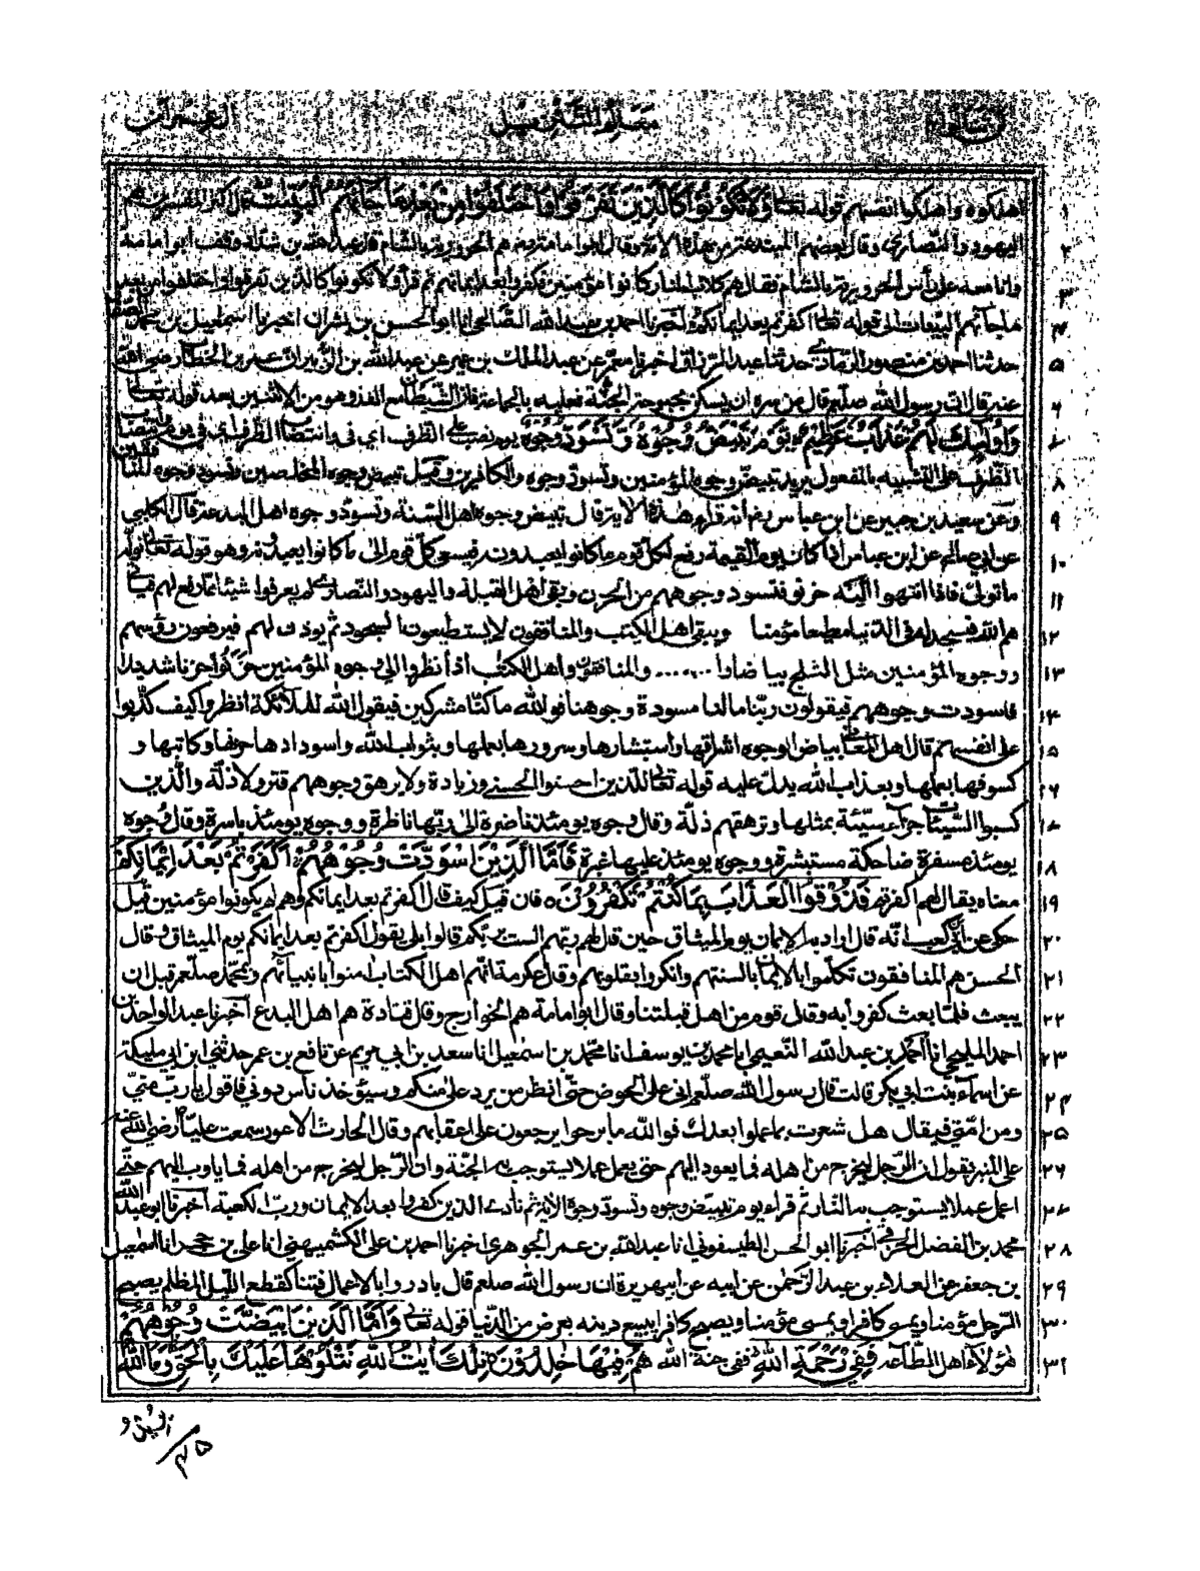 معالم التنزيل
اهلكوه واهلكوا انفسهم قوله تعالى ولا تكونوا كالذين تفرقوا واختلفوا من بعد ما جاءهم البينت قال اكثر المفسرين هم ١
اليهود والنصارى وقال بعضهم المبتدعة من هذه الامة وقال ابو امامة هم الحرورية بالشام قال عبد الله بن شداد وقف ابو امامة ٢
وانا معه على رأس الحرورية بالشام فقال هم كلاب النار كانوا مؤمنين فكفروا بعد ايمانهم ثم قرأ ولا تكونوا كالذين تفرقوا واختلفوا من بعد ٣
ما جاءهم البينات الى قوله تعالى اكفرتم بعد ايمانكم اخبرنا احمد بن عبد الله الصالحي انا ابو الحسن بن بشران اخبرنا اسمعيل بن محمد الصفار ٤
حدثنا احمد بن منصور الرمادي حدثنا عبد الرزاق اخبرنا معمر عن عبد الملك بن عمير عن عبد الله بن الزبير ان عمر بن الخطاب رضي الله ٥
عنه قال ان رسول الله صلعم قال من سره ان يسكن بحبوحة الجنة فعليه بالجماعة فان الشيطان مع الفذ وهو من الاثنين بعد قوله تعالى ٦
واولٓئك لهم عذاب عظيم يوم تبيض وجوه وتسود وجوه يوم نصب على الظرف اي في وانتصاب الظرف اي في يوم ٧
الظرف على التشبيه بالمفعول يريد تبيض وجوه المؤمنين وتسود وجوه والكافرين وقيل تبيض وجوه المخلصين وتسود وجوه المنافقين ٨
وعن سعيد بن جبير عن ابن عباس رض انه قرأ هذه الاية قال تبيض وجوه اهل السنة وتسود وجوه اهل البدعة قال الكلبي ٩
عن ابي صالح عن ابن عباس اذا كان يوم القيمة رفع لكل قوم ما كانوا يعبدونه فيسعى كل قوم الى ما كانوا يعبدونه وهو قوله تعالى نوله ١٠
ما تولى فاذا انتهوا اليه حزنوا فتسود وجوههم من الحزن وبقي اهل القبلة واليهود والنصارى لم يعرفوا شيئا مما رفع لهم فيأتي ١١
هم الله فيسجد له في الدنيا مطيعا مؤمنا ويبقى اهل الكتب والمنافقون لا يستطيعون السجود ثم يؤذن لهم فيرفعون رؤسهم ١٢
ووجوه المؤمنين مثل الثلج بياضا وا ...... والمنافقون واهل الكتب اذا نظروا الى وجوه المؤمنين حزنوا حزنا شديدا ١٣
فاسودت وجوههم فيقولون ربنا مالنا مسودة وجوهنا فوالله ما كنا مشركين فيقول الله للملائكة انظروا كيف كذبوا ١٤
على انفسهم قال اهل المعاني بياض الوجوه اشراقها واستبشارها وسرورها بعملها وبثواب الله واسودادها حزنها وكاتبها و ١٥
كسوفها بعملها وبعذاب الله يدل عليه قوله تعالى للذين احسنوا الحسنى وزيادة ولا يرهق وجوههم قتر ولا ذلة والذين ١٦
كسبوا السيئات جزاء سيئة بمثلها وترهقهم ذلة وقال وجوه يومئذ ناضرة الى ربها ناظرة ووجوه يومئذ باسرة وقال وجوه ١٧
يومئذ مسفرة ضاحكة مستبشرة ووجوه يومئذ عليها غبرة فاما الذين اسودت وجوههم اكفرتم بعد ايمانكم ١٨
معناه يقال لهم اكفرتم فذوقوا العذاب بما كنتم تكفرون ٥ فان قيل كيف قال اكفرتم بعد ايمانكم وهم لم يكونوا مؤمنين قيل ١٩
حكي عن ابي بن كعب انه قال اراد به الايمان يوم الميثاق حين قال لهم ربهم الست بربكم قالوا بلى يقول اكفرتم بعد ايمانكم يوم الميثاق وقال ٢٠
الحسن هم المنافقون تكلموا بالايمان بالسنتهم وانكروا بقلوبهم وقال عكرمة انهم اهل الكتاب امنوا بانبيائهم وبمحمد صلعم قبل ان ٢١
يبعث فلما بعث كفروا به وقال قوم من اهل قبلتنا وقال ابو امامة هم الخوارج وقال قتادة هم اهل البدع اخبرنا عبد الواحد بن ٢٢
احمد المليحي انا احمد بن عبد الله النعيمي انا محمد بن يوسف انا محمد بن اسمعيل انا سعد بن ابي مريم عن نافع بن عمر حدثني ابن ابي مليكة ٢٣
عن اسماء بنت ابي بكر قالت قال رسول الله صلعم اني على الحوض حتى انظر من يرد على منكم وسيؤخذ ناس دوني فاقول يا رب مني ٢٤
ومن امتي فيقال هل شعرت بما عملوا بعدك فوالله ما برحوا يرجعون على اعقابهم وقال الحارث الاعور سمعت عليا رضي الله عنه ٢٥
على المنبر يقول ان الرجل ليخرج من اهله فما يعود اليهم حتى يعمل عملا يستوجب به الجنة وان الرجل ليخرج من اهله فما يأوب اليهم حتى ٢٦
اعمل عملا يستوجب به النار ثم قرأ يوم تبيض وجوه وتسود وجوه الاية ثم نادى الذين كفروا بعد الايمان ورب الكعبة اخبرنا ابو عبد الله ٢٧
محمد بن الفضل الخرقي اخبرنا ابو الحسن الطيسفوني انا عبد الله بن عمر الجوهري اخبرنا احمد بن علي الكشميهني انا علي بن حجر انا اسمعيل ٢٨
بن جعفر عن العلاء بن عبد الرحمن عن ابيه عن ابي هريرة ان رسول الله صلعم قال بادروا بالاعمال فتنا كقطع الليل المظلم يصبح ٢٩
الرجل مؤمنا ويمسي كافرا ويمسي مؤمنا ويصبح كافرا يبيع دينه بعرض من الدنيا قوله تعالى واما الذين ابيضت وجوههم ٣٠
هؤلاء اهل الطاعة ففي رحمة الله ففي جنة الله هم فيها خلدون تلك ايت الله نتلوها عليك بالحق وما الله ٣١